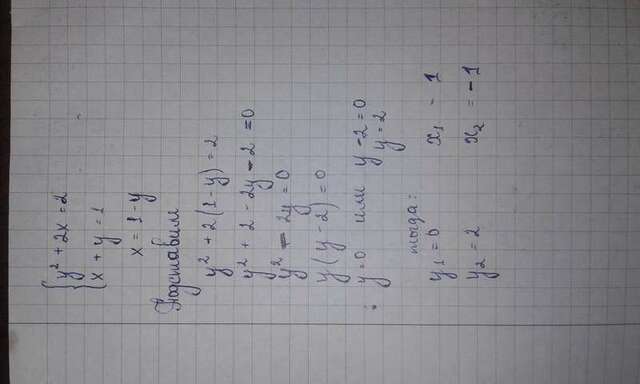 { y² + 2x = 2
{ x + y = 1
x = 1 - y
Подставим
y² + 2(1 - y) = 2
y² + 2 - 2y - 2 = 0
y² - 2y = 0
y(y - 2) = 0
y = 0 или y - 2 = 0
y = 2
тогда:
y₁ = 0 x₁ - 1
y₂ = 2 x₂ = -1